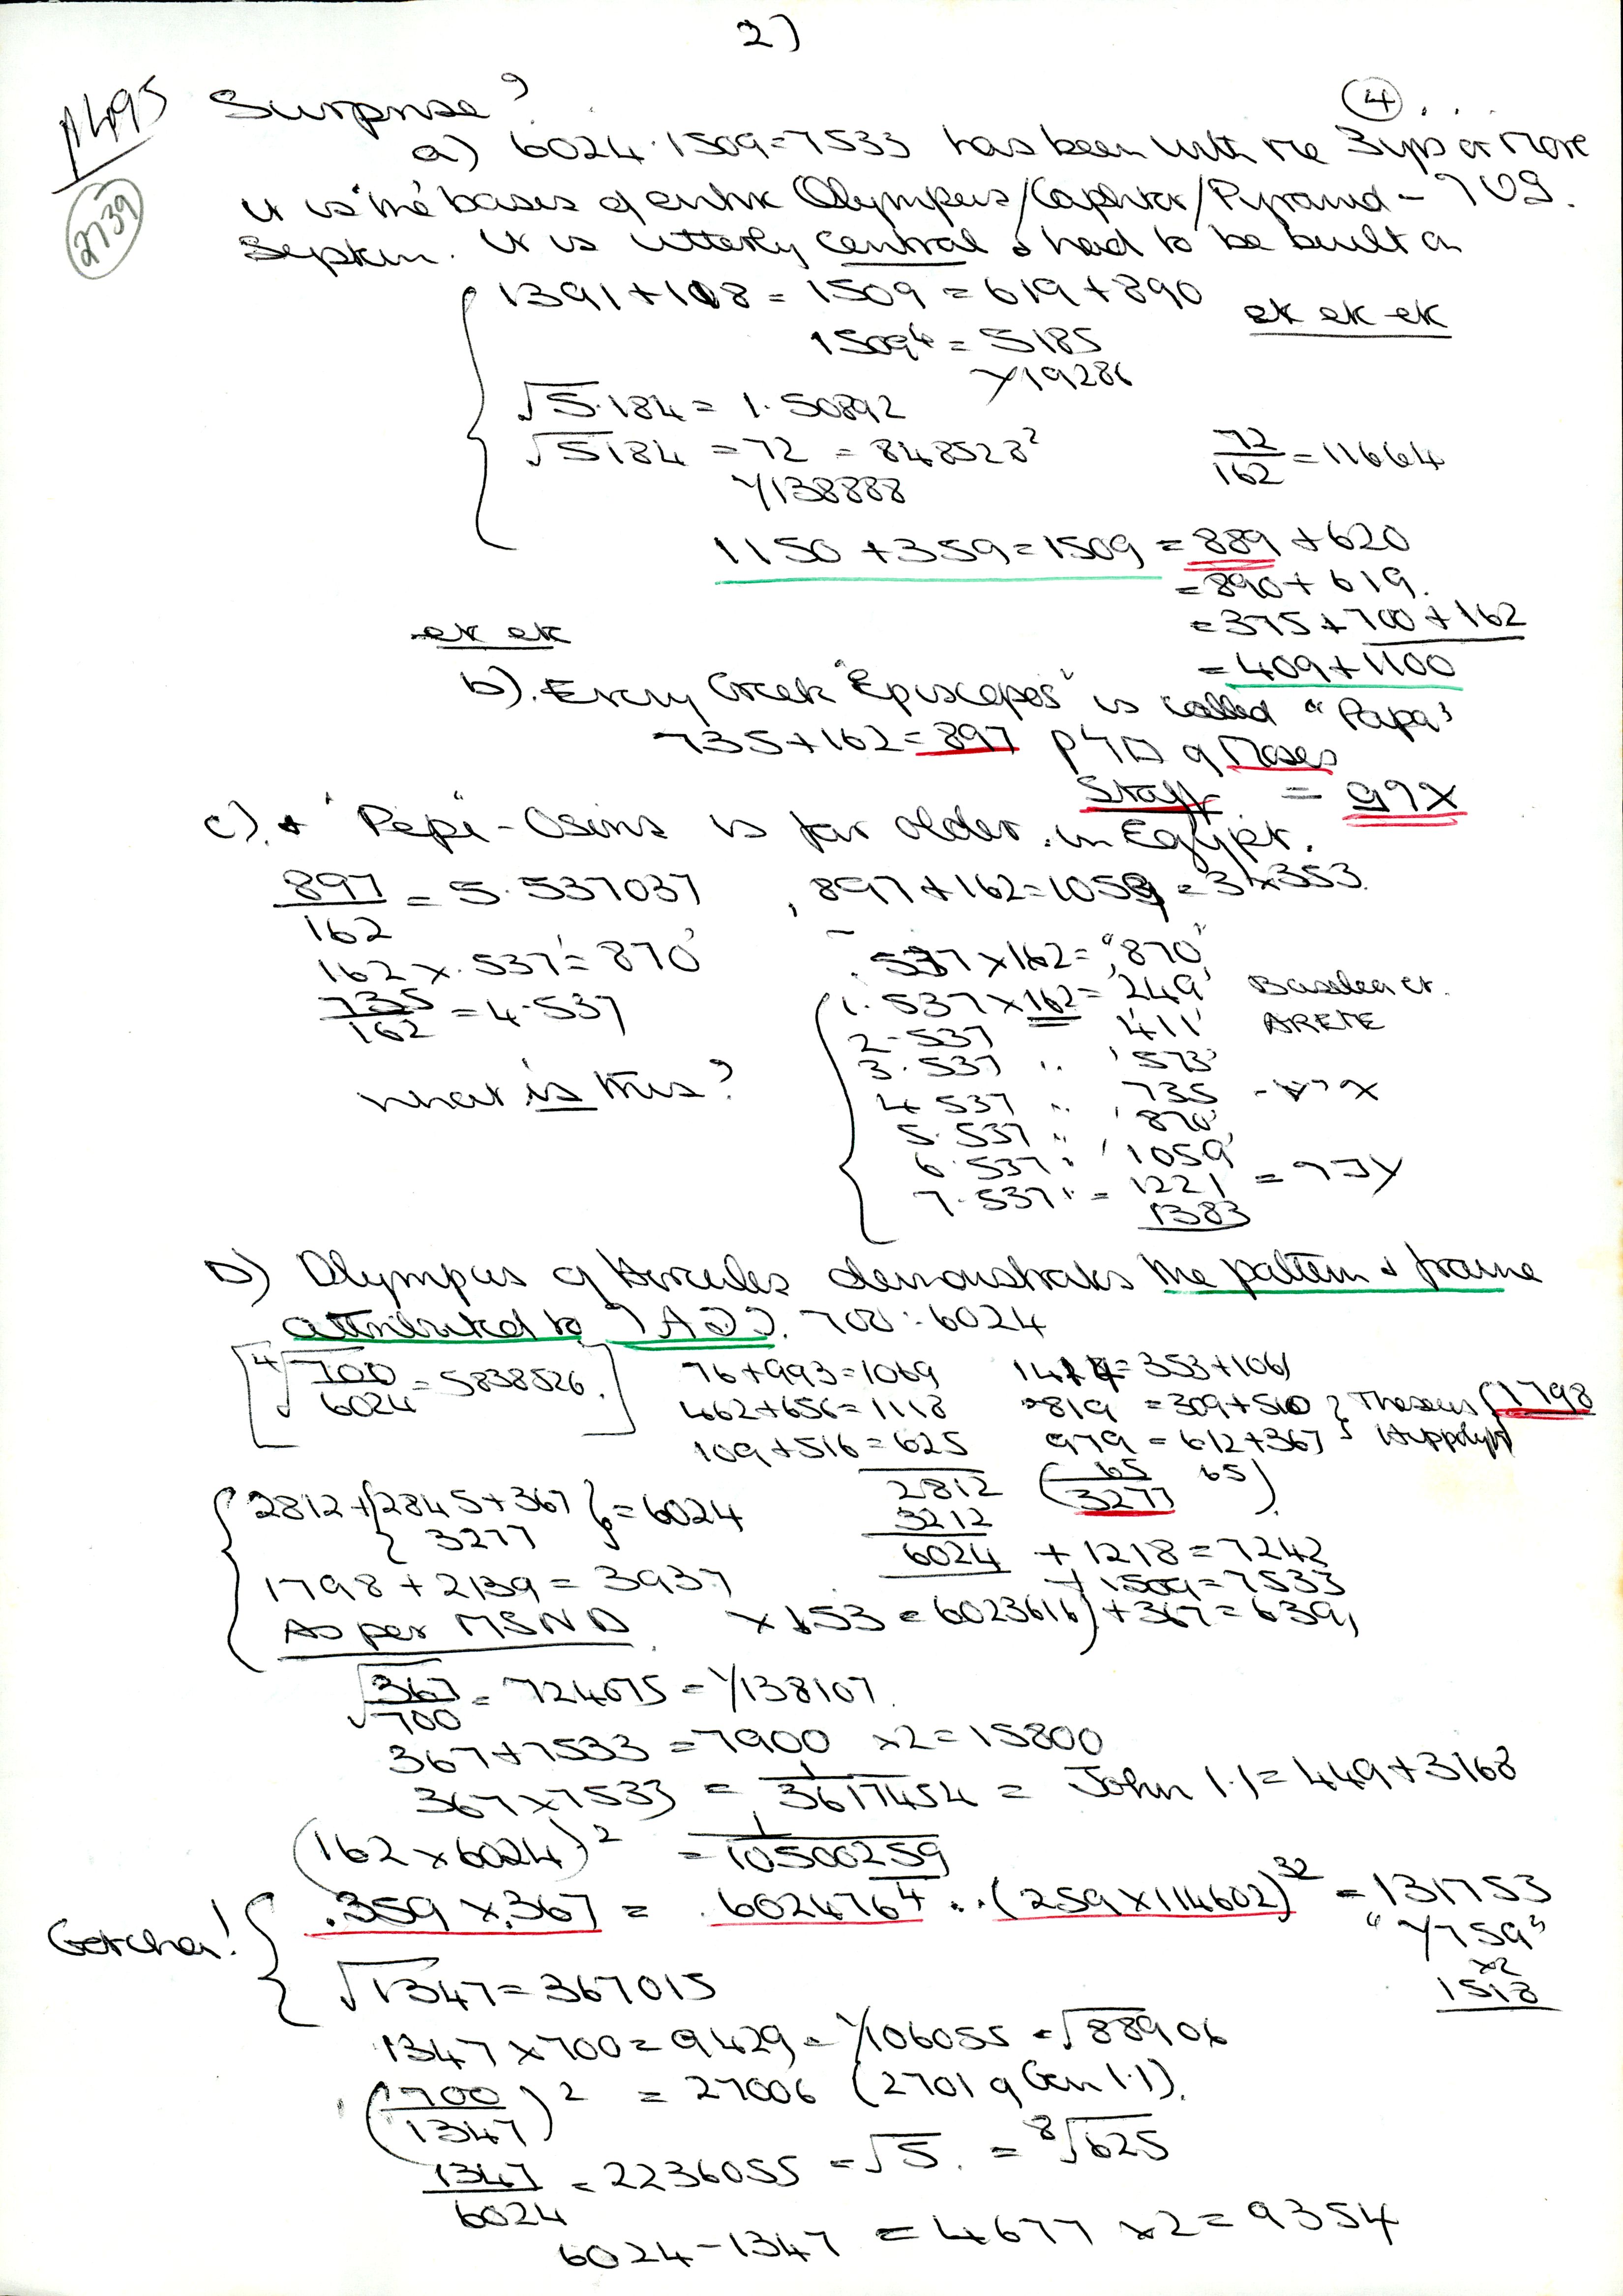 2)
1495
2739
Surprise?
(4) . . .
a) 6024·1509=7533 has been with me 3yrs or more
it is the bases of entire Olympus/Caphtor/Pyramid -
System. It is utterly central & had to be built on
1391+118 = 1509 = 619+890
ek ek ek
1509⁴ = 5185
Y19286
√5.184 = 1.50892
√5184 = 72 = 848528²
Y138888
72/162 = 11664
1150 + 359 = 1509 = 889 + 620
= 890 + 619.
= 375 + 700 + 162
ek ek
= 409 + 1100
b). Every Greek "Episcopos" is called "Papa"
735+162 = 897 of Moses
Staff =
c). + "Pepi"-Osiris is far older in Egypt.
897/162 = 5.537037 , 897+162=1059 = 3×353.
162 × .537 = 870'
.537×162= "870"
735/162 = 4.537
1.537×162= '249' Basileia et.
2.537 '411' ARETE
3.537 " '573'
What is this?
4.537 " 735
5.537 " '870'
6.537 " '1059'
7.537 " = 1221
1383
D) Olympus of Hercules demonstrates the pattern & frame
attributed to 700:6024
[⁴√700/6024 = 5838526.]
76+993=1069
462+656=1118
109+516=625
2812
3212
6024 + 1218 = 7242
+ 1509 = 7533
1414=353+1061
819 = 309+510 } Theseus (1798
979 = 612+367 } Hippolyt
(65/3277 65).
2812+{2845+367}=6024
3277
1798 + 2139 = 3937
As per MSND
×153 = 6023616) + 367 = 6391
√367/700 = 724075 = Y138107.
367+7533 = 7900 ×2=15800
367×7533 = 1/3617454 = John 1.1 = 449+3168
(162×6024)² = 1/10500259
Gotcha! { .359 × .367 = .6024764 .. (259×114602)³² = 131753
"Y759"
×2
1518
√1347 = 367015
1347×700 = 9429 = Y106055 = √88906
(700/1347)² = 27006 (2701 of Gen 1.1).
1347/6024 = 2236055 = √5. = ⁸√625
6024 - 1347 = 4677 ×2 = 9354